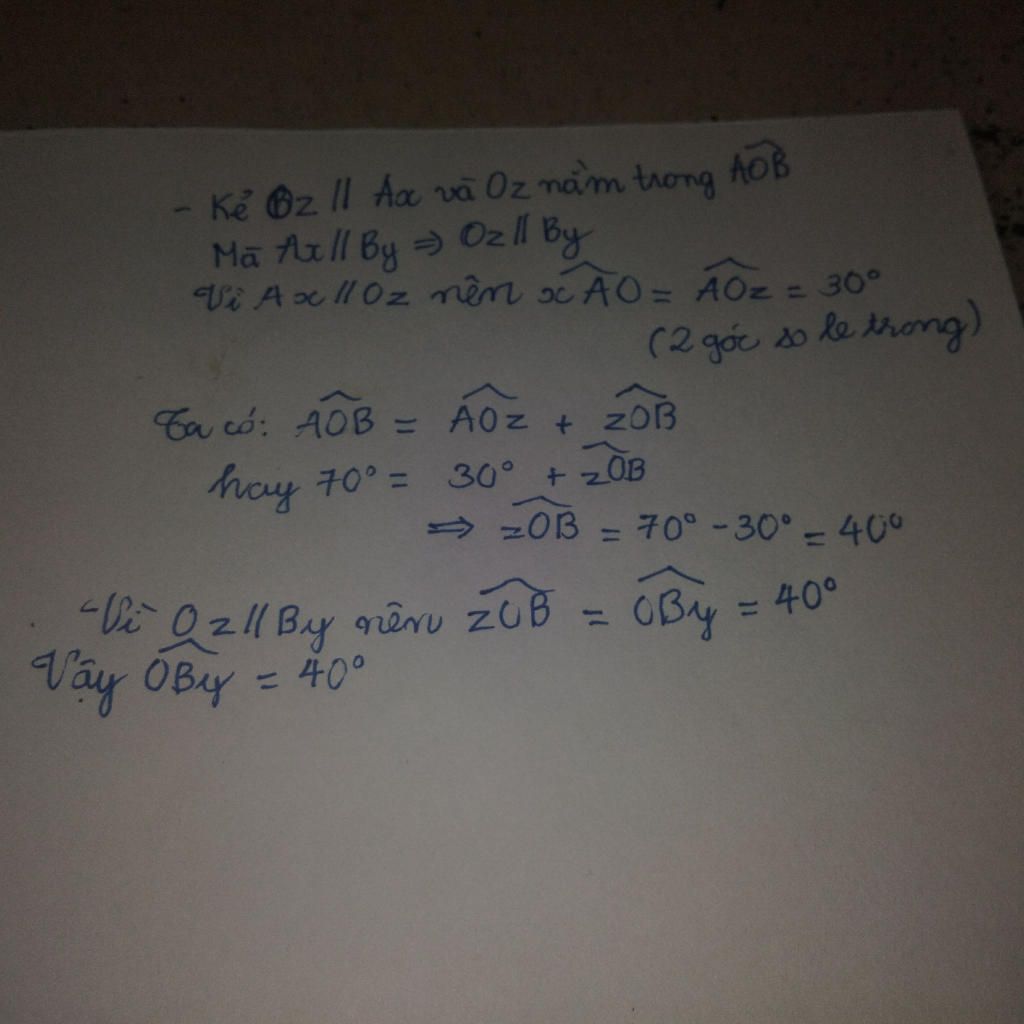 - Kẻ Oz // Ax và Oz nằm trong AOB
Mà Ax // By ⇒ Oz // By
Vì Ax // Oz nên xAO = AOz = 30°
(2 góc so le trong)
Ta có: AOB = AOz + zOB
hay 70° = 30° + zOB
⇒ zOB = 70° - 30° = 40°
- Vì Oz // By nên zOB = OBy = 40°
Vậy OBy = 40°